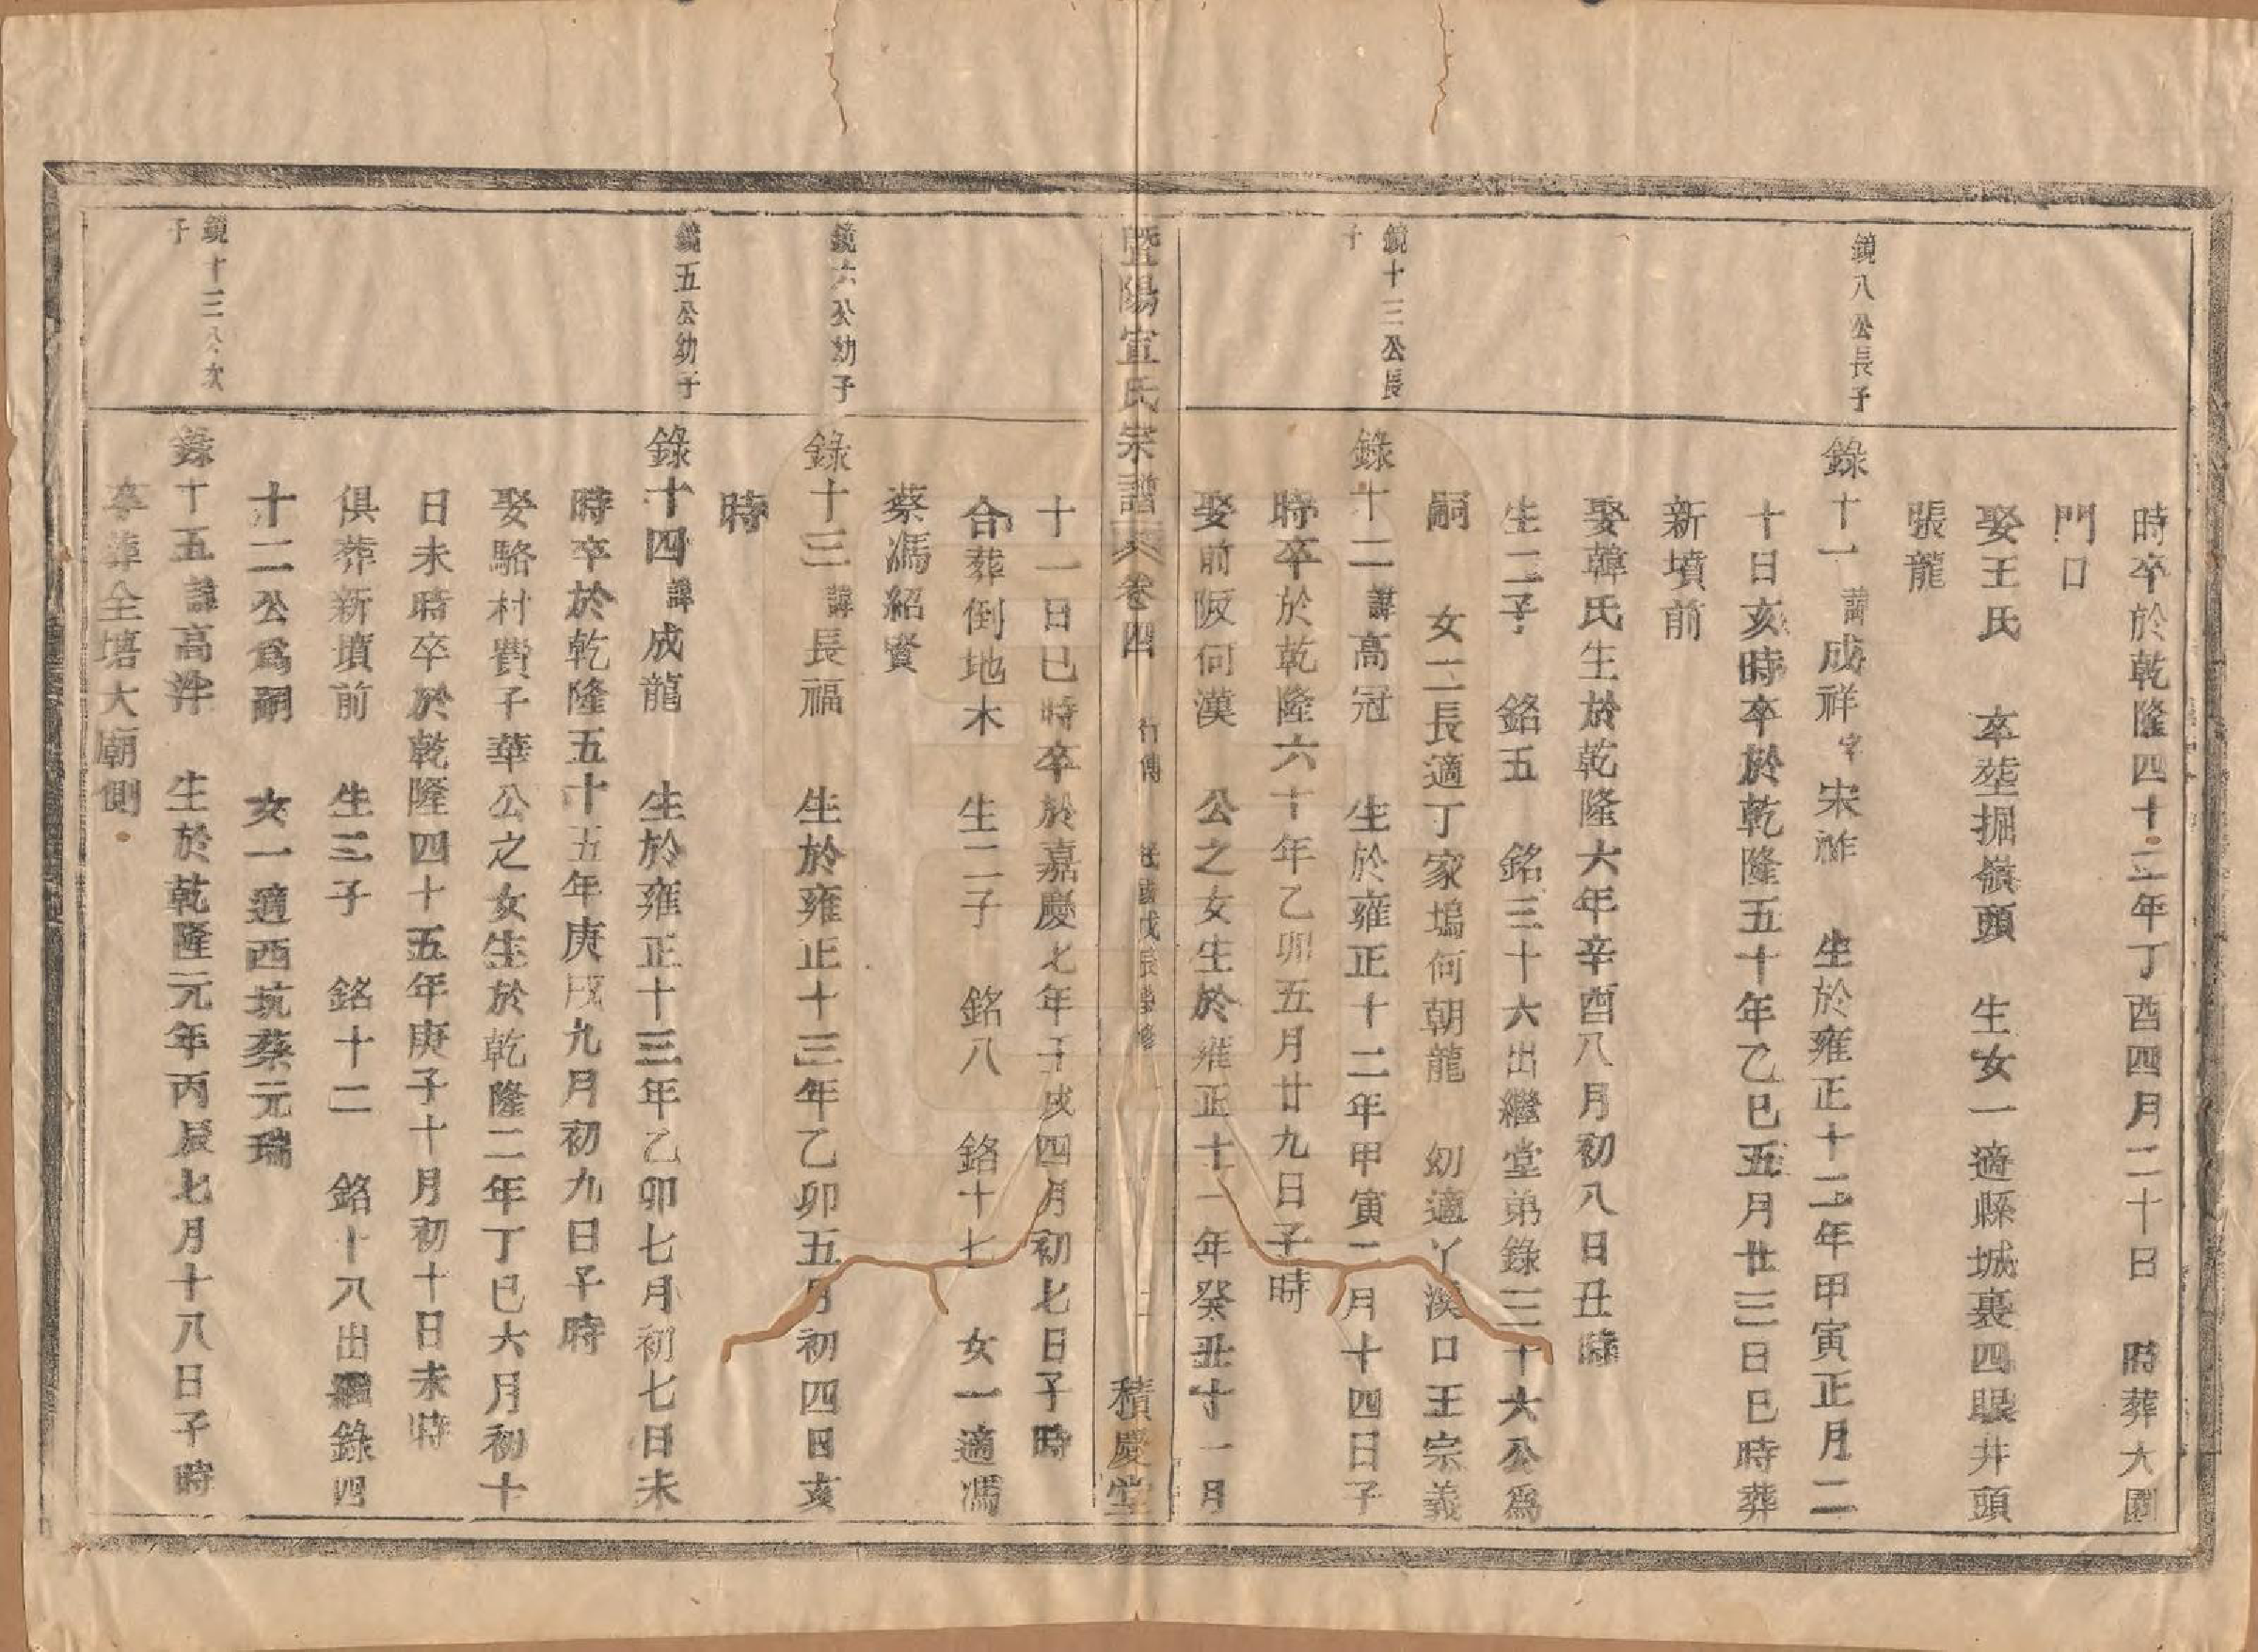 時卒於乾隆四十二年丁酉四月二十日　時葬大園
門口
娶王氏　卒塟掘嶺頭　生女一適縣城裏四眼井頭
張龍
鏡八公長子
錄十一諱成祥字宋祚　生於雍正十二年甲寅正月二
十日亥時卒於乾隆五十年乙巳五月廿三日巳時葬
新墳前
娶韓氏生於乾隆六年辛酉八月初八日丑時
生二子　銘五　銘三十六出繼堂弟錄三十六公爲
嗣　女二長適丁家塢何朝龍　幼適丫溪口王宗義
鏡十三公長
子
錄十二諱高冠　生於雍正十二年甲寅二月十四日子
時卒於乾隆六十年乙卯五月廿九日子時
娶前阪何漢　公之女生於雍正十一年癸丑十一月
暨陽宣氏宗譜　卷四　行傳　民國戊辰重修　二　積慶堂
十一日巳時卒於嘉慶七年壬戌四月初七日子時
合葬倒地木　生二子　銘八　銘十七　女一適馮
蔡馮紹賢
鏡六公幼子
錄十三諱長福　生於雍正十三年乙卯五月初四日亥
時
鏡五公幼子
錄十四諱成龍　生於雍正十三年乙卯七月初七日未
時卒於乾隆五十五年庚戌九月初九日子時
娶駱村費子華公之女生於乾隆二年丁巳六月初十
日未時卒於乾隆四十五年庚子十月初十日未時
俱葬新墳前　生三子　銘十二　銘十八出繼錄四
十二公爲嗣　女一適西坑蔡元瑞
鏡十三公次
子
錄十五諱高泮　生於乾隆元年丙辰七月十八日子時
卒葬全塔大廟側